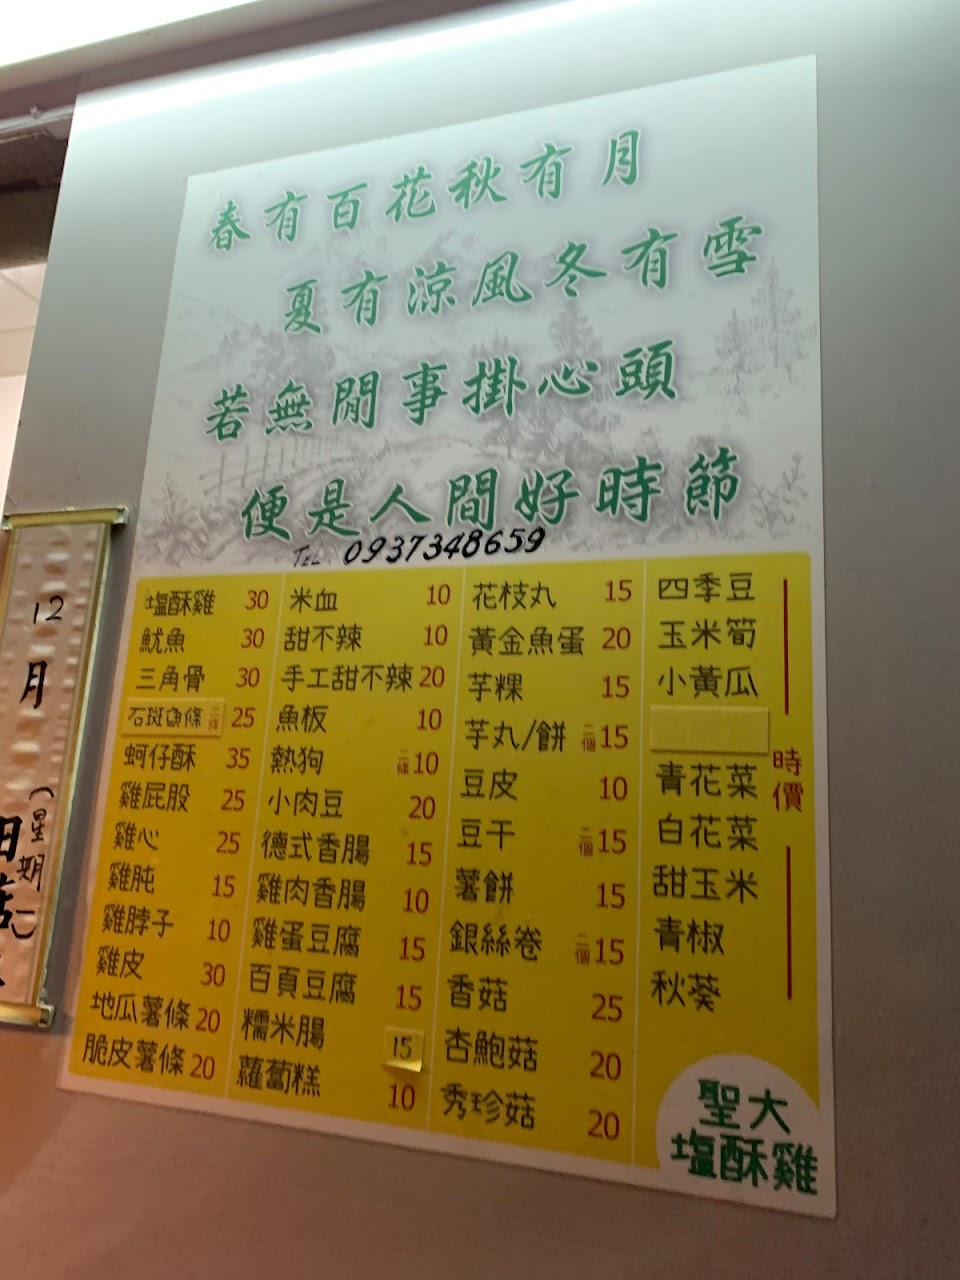 春有百花秋有月
夏有涼風冬有雪
若無閒事掛心頭
便是人間好時節
TEL 0937348659
塩酥雞 30
魷魚 30
三角骨 30
石斑魚條 二條 25
蚵仔酥 35
雞屁股 25
雞心 25
雞肫 15
雞脖子 10
雞皮 30
地瓜薯條 20
脆皮薯條 20
米血 10
甜不辣 10
手工甜不辣 20
魚板 10
熱狗 二條 10
小肉豆 20
德式香腸 15
雞肉香腸 10
雞蛋豆腐 15
百頁豆腐 15
糯米腸 15
蘿蔔糕 10
花枝丸 15
黃金魚蛋 20
芋粿 15
芋丸/餅 二個 15
豆皮 10
豆干 二個 15
薯餅 15
銀絲卷 二個 15
香菇 25
杏鮑菇 20
秀珍菇 20
四季豆
玉米筍
小黃瓜
青花菜
白花菜
甜玉米
青椒
秋葵
時價
聖大
塩酥雞
12月(星期一)